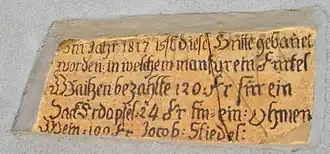 Im Jahr 1817 ist diese Hütte gebauet
worden: in welchem man für ein Fürtel
Waitzen bezahlte 120 Fr für ein
Sack Erdöpfel 24 Fr für ein: Ohmen
Wein: 100 Fr Jacob: Stiedel: